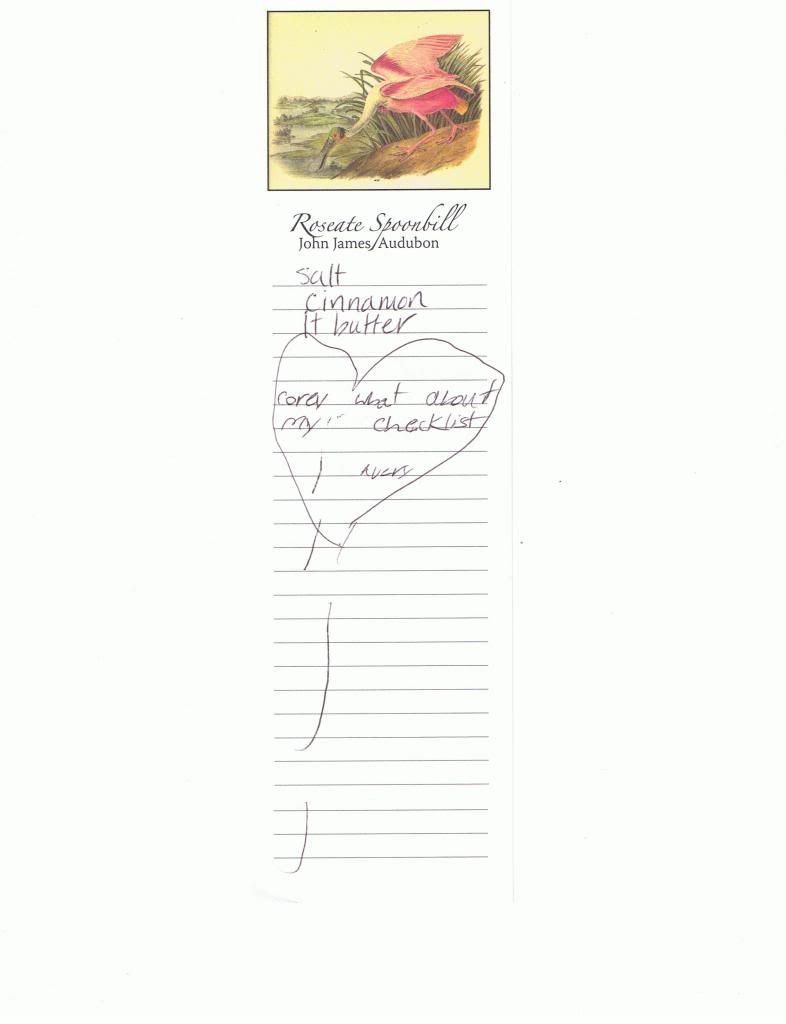 Roseate Spoonbill
John James Audubon
Salt
Cinnamon
lt butter
corey what about
my checklist